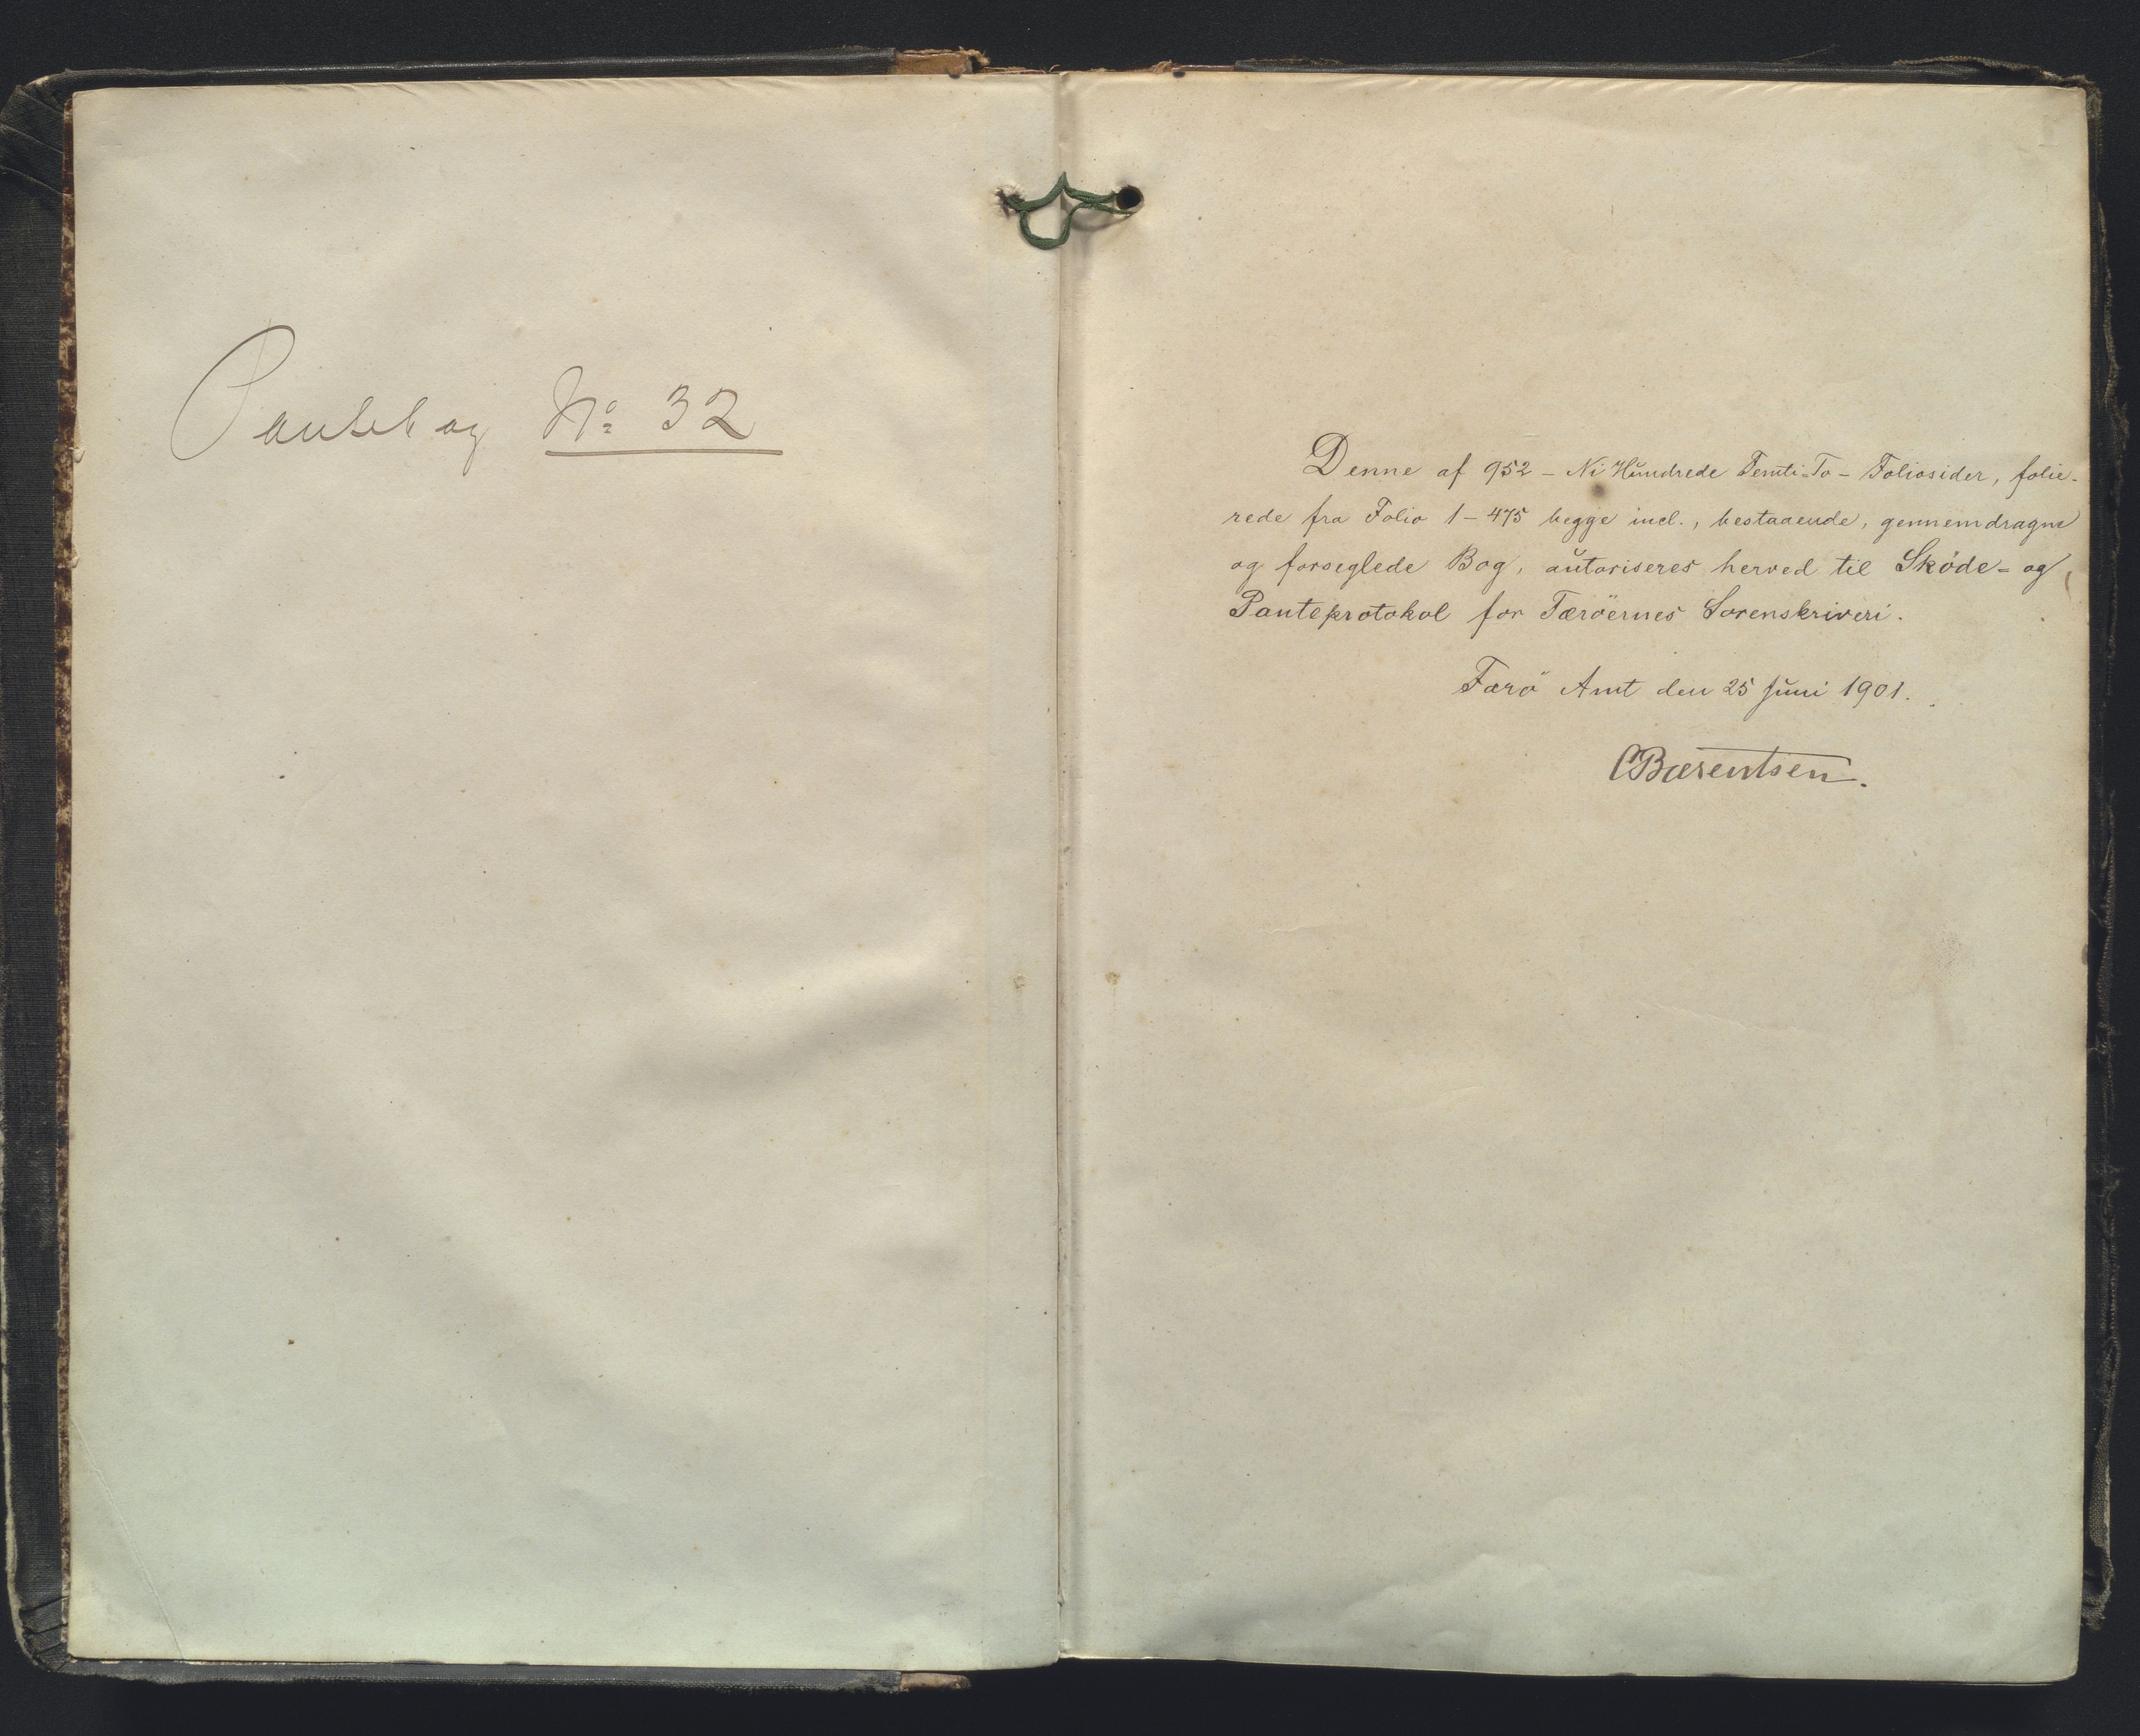 Pantebog No 32
Denne af 952 - Ni Hundrede Femti-To - Foliosider, folie-
rede fra Folio 1-475 begge incl., bestaaende, gennemdragne
og forseglede Bog, autoriseres herved til Sköde- og
Panteprotokol for Færöernes Sorenskriveri.
Færö Amt den 25 Juni 1901.
CBærentsen.